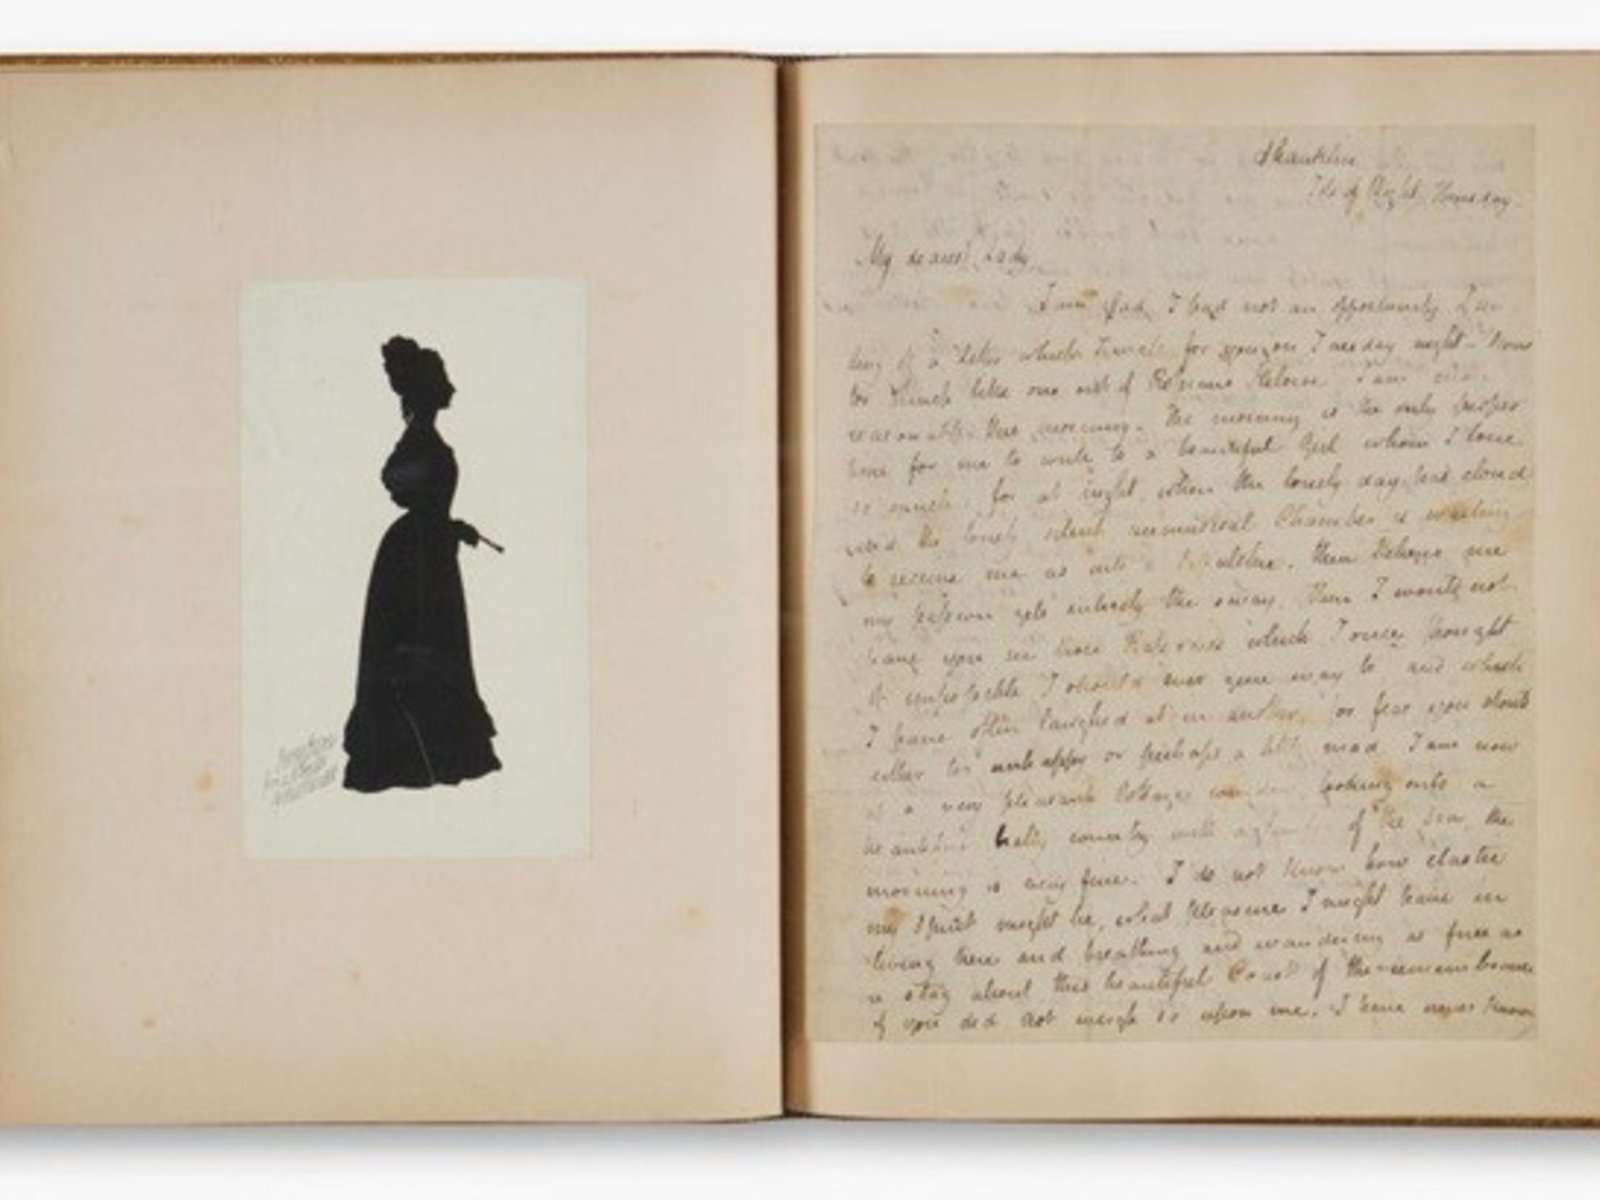 Shanklin
Isle of Wight Thursday
My dearest Lady
I am glad I had not an opportunity
of a Letter which I wrote for you on Tuesday night
too much like one out of Heloise I am
reasonable this morning. The morning is the only proper
time for me to write to a beautiful Girl whom I love
so much: for at night, when the lonely day has closed
and the lonely silent unmusical Chamber is waiting
to receive me as into a, then believe me
my passion gets entirely the sway, then I would not
have you see those which I once thought
it impossible I should ever give way to and which
I have often laughed at in another, for fear you should
either too unhappy or perhaps a little mad. I am now
at a very pleasant Cottage window looking onto a
hilly country with a of the sea, the
morning is very fine. I do not know how elastic
my spirit might be, what pleasure I might have in
living here and breathing and wandering as free as
a stag about this beautiful Coast if the remembrance
of you did not weigh so upon me. I have never known